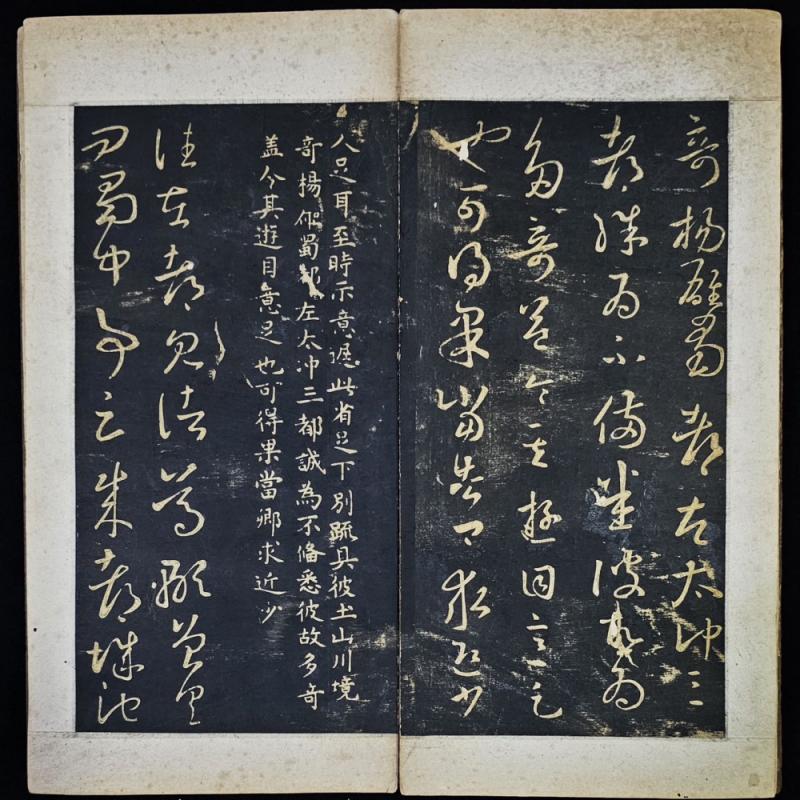 奇揚雄蜀都左太冲三
都殊為不備悉彼故為
多奇益令其遊目意足
也可得果當告卿求迎少
人足耳至時示意遲此省足下別疏具彼土山川境
奇揚雄蜀都左太冲三都誠為不俻悉彼故多奇
盖今其遊目意足也可得果當卿求近少
往在都見諸葛顒曾具
問蜀中事云成都城池